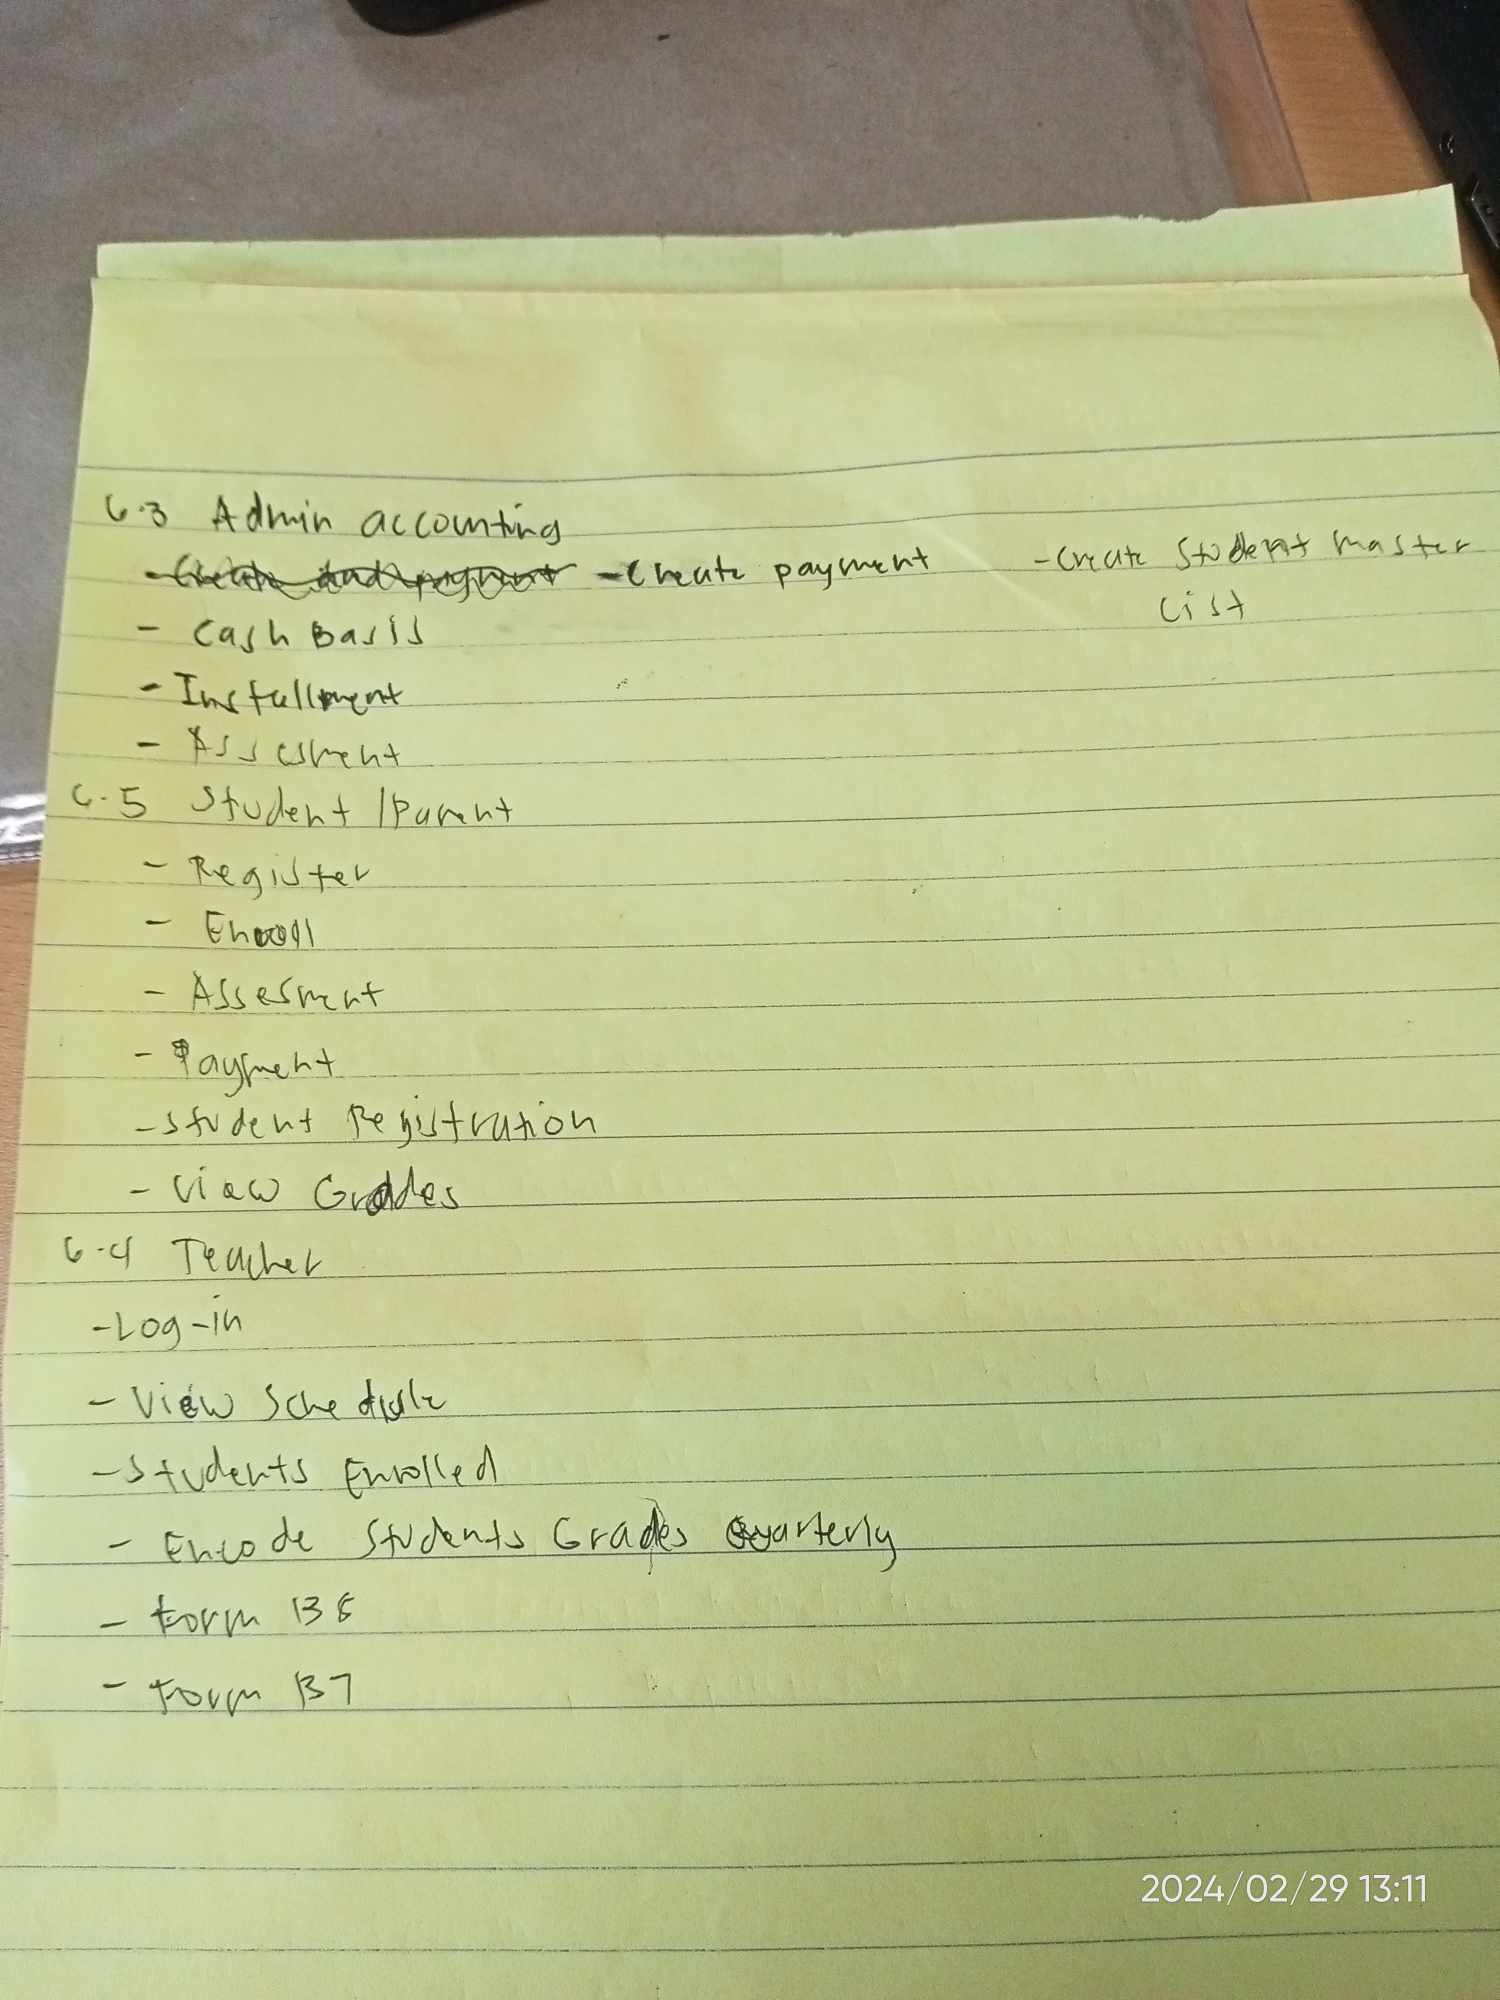 6.3 Admin accounting
- Create payment - Create Student Master
List
- Cash Basis
- Installment
- Assesment
6.5 Student / Parent
- Register
- Enroll
- Assesment
- Payment
- Student Registration
- View Grades
6.4 Teacher
- Log-in
- View Schedule
- Students Enrolled
- Encode Students Grades Quarterly
- Form 138
- Form 137
2024/02/29 13:11